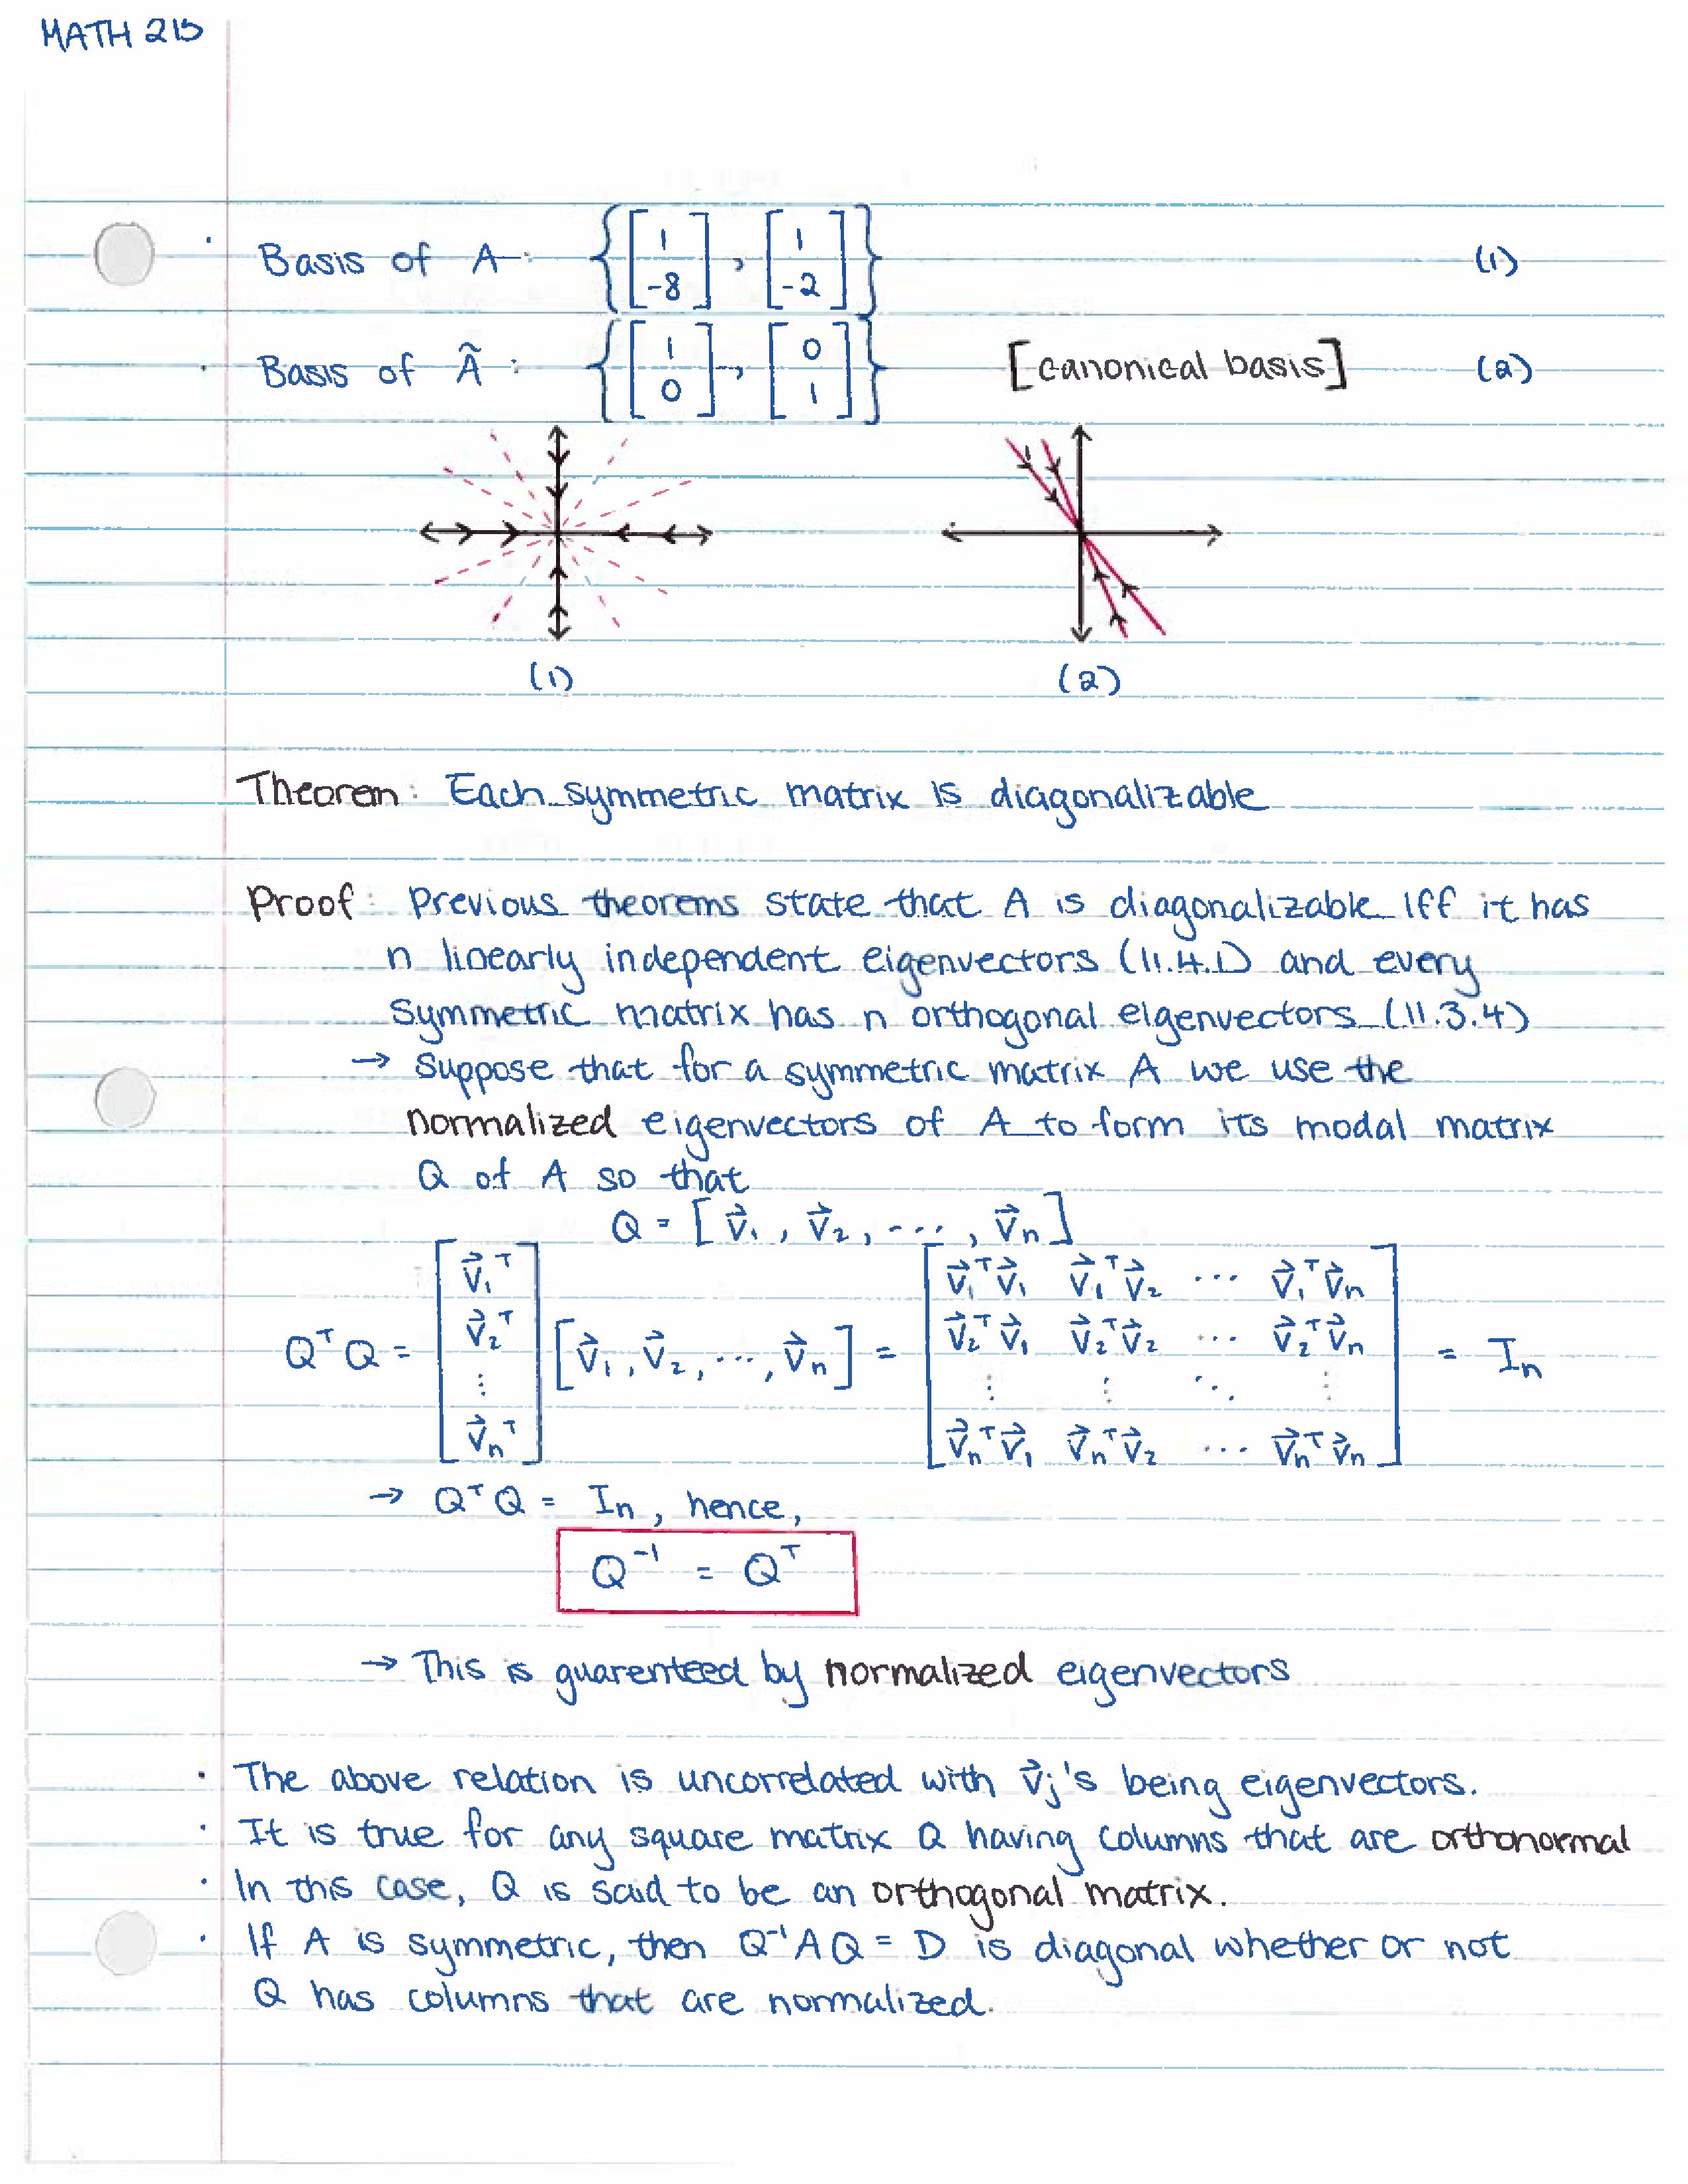 MATH 215
· Basis of A: {[1 -8], [1 -2]} (1)
· Basis of Ã: {[1 0], [0 1]} [canonical basis] (2)
(1) (2)
Theorem: Each symmetric matrix is diagonalizable
Proof: Previous theorems state that A is diagonalizable iff it has
n linearly independent eigenvectors (11.4.1) and every
symmetric matrix has n orthogonal eigenvectors (11.3.4)
→ Suppose that for a symmetric matrix A we use the
normalized eigenvectors of A to form its modal matrix
Q of A so that
Q = [v⃗₁, v⃗₂, ..., v⃗ₙ]
QᵀQ = [v⃗₁ᵀ v⃗₂ᵀ ⋮ v⃗ₙᵀ] [v⃗₁, v⃗₂, ..., v⃗ₙ] = [v⃗₁ᵀv⃗₁ v⃗₁ᵀv⃗₂ ... v⃗₁ᵀv⃗ₙ v⃗₂ᵀv⃗₁ v⃗₂ᵀv⃗₂ ... v⃗₂ᵀv⃗ₙ ⋮ ⋮ ⋱ ⋮ v⃗ₙᵀv⃗₁ v⃗ₙᵀv⃗₂ ... v⃗ₙᵀv⃗ₙ] = Iₙ
→ QᵀQ = Iₙ, hence,
Q⁻¹ = Qᵀ
→ This is guarenteed by normalized eigenvectors
· The above relation is uncorrelated with v⃗ⱼ's being eigenvectors.
· It is true for any square matrix Q having columns that are orthonormal
· In this case, Q is said to be an orthogonal matrix.
· If A is symmetric, then Q⁻¹AQ = D is diagonal whether or not
Q has columns that are normalized.